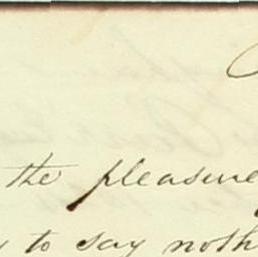 the pleasure
to say noth